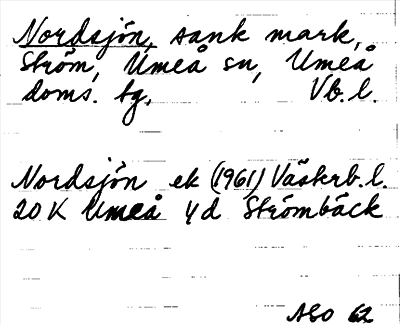 Nordsjön, sank mark,
Ström, Umeå sn, Umeå
doms. tg, Vb. l.
Nordsjön ek (1961) Västerb. l.
20 K Umeå 4 d Strömbäck
ASO 62